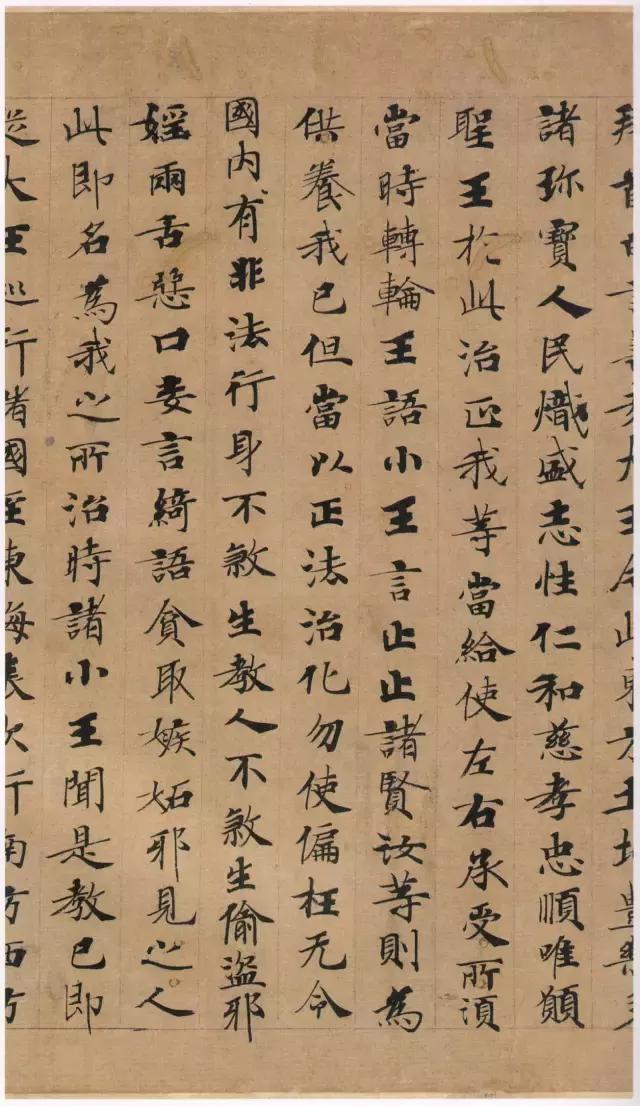 言善哉大王今此東方土地豊樂多
諸珎寶人民熾盛志性仁和慈孝忠順唯願
聖王於此治正我等當給使左右承受所湏
當時轉輪王語小王言止止諸賢汝等則為
供養我已但當以正法治化勿使偏枉无令
國内有非法行身不煞生教人不煞生偷盜邪
婬兩舌惡口妄言綺語貪取嫉妬邪見之人
此即名為我之所治時諸小王聞是教已即
從大王巡行諸國至東海表次行南方西方